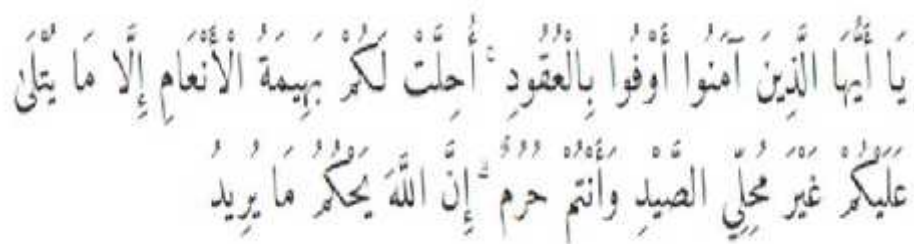 يَا أَيُّهَا الَّذِينَ آمَنُوا أَوْفُوا بِالْعُقُودِ ۚ أُحِلَّتْ لَكُمْ بَهِيمَةُ الْأَنْعَامِ إِلَّا مَا يُتْلَىٰ
عَلَيْكُمْ غَيْرَ مُحِلِّي الصَّيْدِ وَأَنْتُمْ حُرُمٌ ۗ إِنَّ اللَّهَ يَحْكُمُ مَا يُرِيدُ